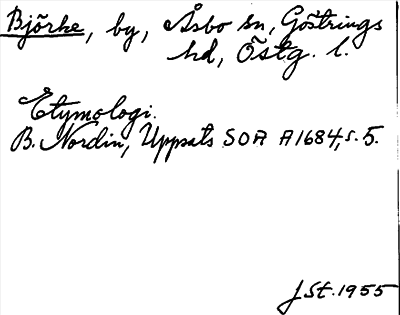 Björke, by, Åsbo sn, Göstrings
hd, Östg. l.
Etymologi.
B. Nordin, Uppsats SOA A1684, s. 5.
J St. 1955